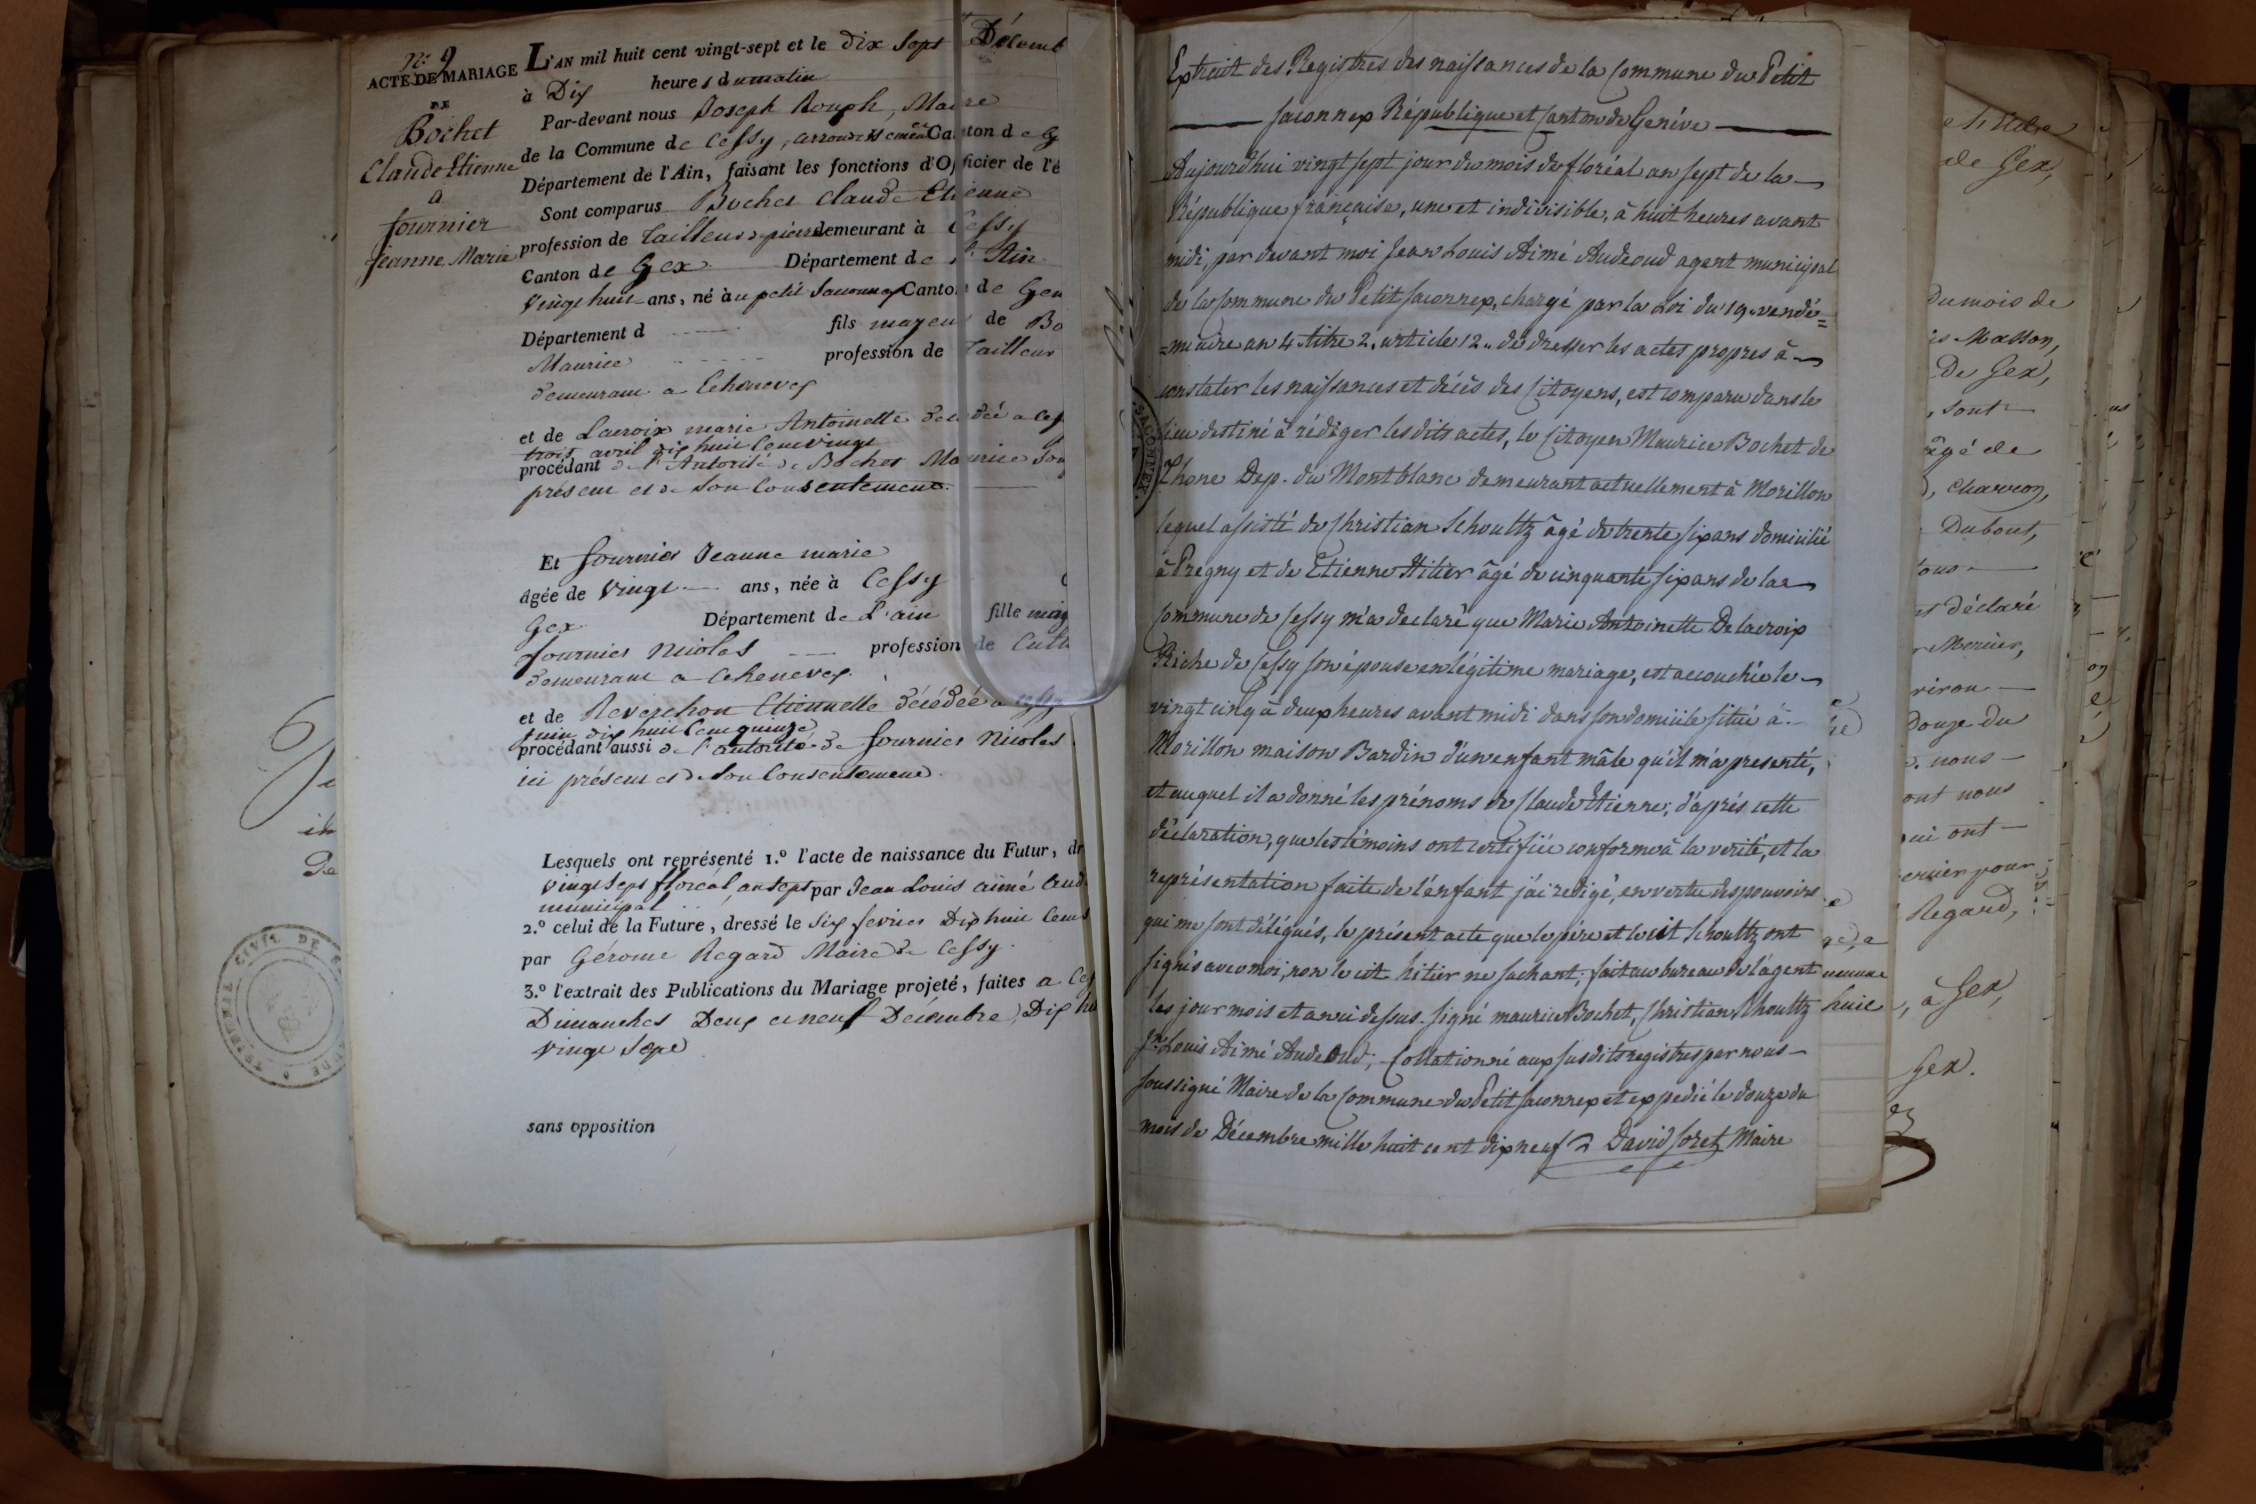 N° 9
ACTE DE MARIAGE
DE
Bochet
Claude Etienne
a
fournier
jeanne Marie
L'AN mil huit cent vingt-sept et le dix Sept Décemb
à Dix heures du matin
Par-devant nous Joseph Rouph, Maire
de la Commune de Cessy, arrondissement Canton de G
Département de l'Ain, faisant les fonctions d'Officier de l'é
Sont comparus Bochet Claude Etienne
profession de Tailleur de pierre demeurant à Cessy
Canton de Gex Département de l'Ain
vingt huit ans, né au petit Saconnex Canton de Gen
Département d fils majeur de Bo
Maurice profession de Tailleur
demeurant a Echenevex
et de Lacroix marie Antoinette décédée a Ces
trois avril dix huit cent vingt
procédant de l'Autorité de Bochet Maurice son
présent et de son Consentement.
Et fournier Jeanne marie
âgée de vingt ans, née à Cessy
Gex Département de L'ain fille maj
fournier Nicolas profession de Cult
demeurant a Echenevex.
et de Reverchon Etiennette décédée a Cessy
juin dix huit cent quinze
procédant aussi de l'autorité de fournier Nicolas
ici présent et de son Consentement.
Lesquels ont représenté 1.° l'acte de naissance du Futur, dr
vingt sept floréal, an sept par Jean Louis aimé Aud
municipal
2.° celui de la Future, dressé le Six fevrier Dix huit Cent
par Gérome Regard Maire de Cessy.
3.° l'extrait des Publications du Mariage projeté, faites a Ces
Dimanches Deux et neuf Décembre, Dix hu
vingt Sept
sans opposition
Extrait des Registres des naissances de la Commune du Petit
Saconnex République et Canton de Genève
Aujourd'hui vingt sept jour du mois de floréal an sept de la
République française, une et indivisible, à huit heures avant
midi, par devant moi Jean Louis Aimé Audeoud agent municipal
de la Commune du Petit Saconnex, chargé par la Loi du 19. vendé=
=miaire an 4 titre 2. article 12. de dresser les actes propres à
constater les naissances et décès des Citoyens, est comparu dans le
lieu destiné à rédiger lesdits actes, le Citoyen Maurice Bochet de
Thone Dep. du Montblanc demeurant actuellement à Morillon
lequel assisté de Christian Schoultz âgé de trente six ans domicilié
à Pregny et de Etienne Hitier âgé de cinquante six ans de la
Commune de Cessy m'a declaré que Marie Antoinette Delacroix
Riche de Cessy son épouse en légitime mariage, est accouchée le
vingt cinq à deux heures avant midi dans son domicile situé à
Morillon maison Bardin d'un enfant mâle qu'il m'a presenté,
et auquel il a donné les prénoms de Claude Etienne; d'après cette
déclaration, que les témoins ont certifiée conforme à la verité, et la
représentation faite de l'énfant j'ai redigé, en vertu des pouvoirs
qui me sont délégués, le présent acte que le père et le cit Schoultz ont
signés avec moi, non le cit hitier ne sachant; fait au bureau de l'agent
les jour mois et an ci dessus. signé maurice Bochet, Christian Schoultz
Jn Louis Aimé Audeoud; Collationné aux susdits registres par nous
soussigné Maire de la Commune du Petit Saconnex et expedié le douze du
mois de Décembre mille huit cent dix neuf David Soret Maire
de Gex,
du mois de
is Masson,
De Gex,
, sont
âgé de
, charron,
Dubout,
ous
et déclaré
r Mercier,
viron
douze du
. nous
ont nous
qui ont
Regard,
huit
, à Gex,
Gex.